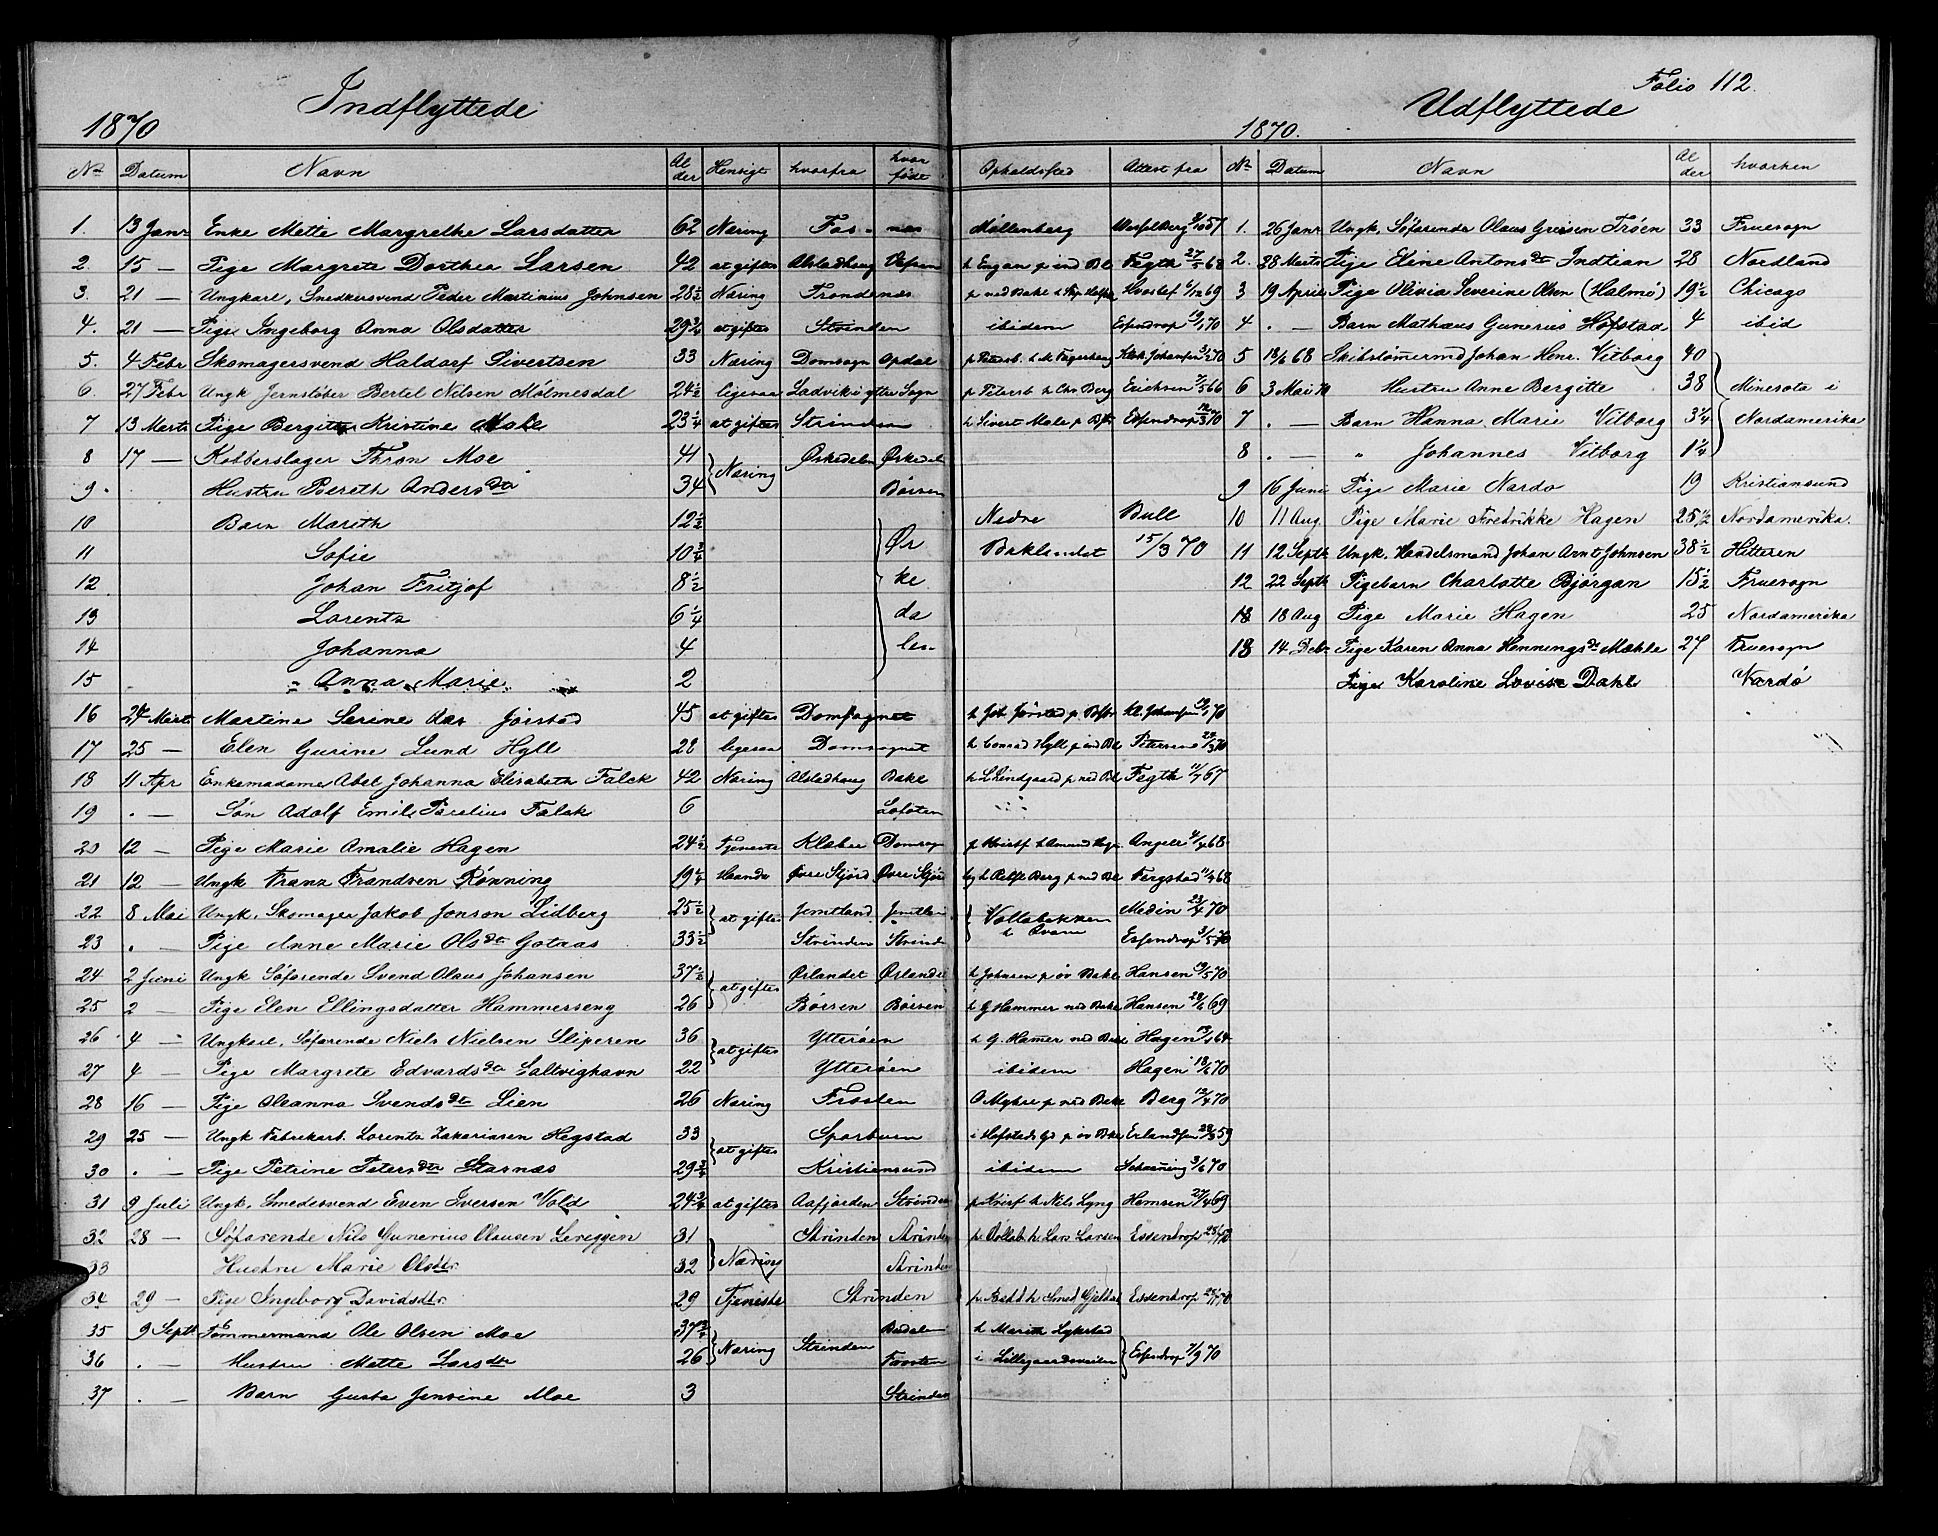 Folio 112.
Indflyttede
1870
No Datum Navn Alder Hensigt hvorfra hvor født Opholdssted Attest fra
1. 13 Janr Enke Mette Margrethe Larsdatter 62 Næring Fosnæs Møllenberg
2. 15 — Pige Margrete Dorthea Larsen 42 at giftes Alstadhaug Vefsen Fegth 27/5 68
3. 21 — Ungkarl, Snedkersvend Peder Martinius Johnsen 28½ Næring Trondenæs
4. 21 — Pige Ingeborg Anna Olsdatter 29¾ at giftes Strinden ibidem
5. 4 Febr Skomagersvend Haldorf Sivertsen 33 Næring Domsogn Opdal
6. 27 Febr Ungk Jernstøber Bertel Nilsen Mølmesdal 24½ ligesaa Ladviks ytre Sogn Erichsen 7/5 66
7 13 Marts Pige Bergitte Kristine Male 23¼ at giftes Strinden h Sivert Male p. Essendrop 12/3 70
8 17 — Kobberslager Thron Moe 41 Næring Ørkedalen Ørkedal
9 Hustru Bereth Andersdtr 34 Børsen
10 Barn Marith 12½ Ør Nedre Bull
11 Sofie 10¾ Baklandet 15/3 70
12 Johan Fritjof 8½ ke
13 Lorents 6¼ da
14 Johanna 4 len
15 Anna Marie 2
16 24 Mart Martine Serine Jørstad 45 at giftes Domsognet
17 25 — Elen Gurine Lund Hyll 28 ligesaa Domsognet h Conrad Hyll p Petersen
18 11 Apr Enkemadame Abel Johanna Elisabeth Falck 42 Næring Alstadhaug Fegth 11/7 67
19 . — Søn Adolf Emil Falck 6 Lofoten
20 12 — Pige Marie Amalie Hagen 24½ Tjeneste Klæbu Domsogn Angell 4/4 68
21 12 — Ungk Franz Frandsen Rønning 19¼ Øvre Stjørd Øvre Stjørd Fergstad 11/4 68
22 8 Mai Ungk. Skomager Jakob Jonson Lidberg 25½ at giftes Jemtland Jemtland Vollabakken Medin 23/4 70
23 . — Pige Anne Marie Olsdtr Gotaas 33½ Strinden Strinden Essendrop 3/5 70
24 2 Juni Ungk Søfarende Svend Olaus Johansen 37½ at giftes Ørlandet Ørlandet h Johnsen p øv Bakl Hansen 10/5 70
25 2 Pige Elen Ellingsdatter Hammerseng 26 Børsen Børsen h G Hammer ned Bakl Hansen
26 4 Ungkarl, Søfarende Niels Nielsen Sliperen 36 at giftes Ytterøen h G. Hamer ned Bakl Hagen
27 4 Pige Margrete Edvardsdtr Saltvighavn 22 Ytterøen ibidem Hagen
28 16 — Pige Oleanna Svendsdtr Lien 26 Næring Frosten O Myhre p ned Bakl Berg
29 25 — Ungk Fabrikarb. Lorents Zakariasen Hegstad 33 at giftes Sparbuen i Hofstads Gd p øv Bakl
30 . — Pige Petrine Petersdtr Starnæs 29¾ Kristiansund ibidem
31 9 Juli Ungk. Smedesvend Even Iversen Vold 24¾ at giftes Aafjorden Strinden h Nils Lyng
32 28 — Søfarende Nils Gunerius Olausen Lereggen 31 Næring Strinden Strinden h Lars Larsen Essendrop
33 Hustru Marie Olsdtr. 32 Strinden
34 29 — Pige Ingeborg Davidsdtr. 29 Tjeneste Strinden Essendrop
35 9 Septb Tømmermand Ole Olsen Moe 37¾ Næring Strinden Budalen
36 . — Hustru Mette Larsdtr 26 Frosten i Lillegaardsveien Essendrop 7/9 70
37 . — Barn Gusta Jensine Moe 3 Strinden
Udflyttede
1870.
No Datum Navn Alder hvorhen
1. 26 Janr Ungk. Søfarende Olaus Trøen 33 Fruesogn
2. 28 Marts Pige Eline Antonsdtr Indtian 28 Nordland
3 19 April Pige Olivia Severine Olsen (Halmø) 19½ Chicago
4 . — Barn Mathæus Gunerius Hofstad 4 ibid
5 18/6 68 Skibstømermd Johan Henr. Vitborg 40
6 3 Mai 70 Hustru Anne Bergitte 38 Minesota i
7 . — Barn Hanna Marie Vitborg 3¼ Nordamerika
8 . — " Johannes Vitborg 1¼
9 16 Juni Pige Marie Nardo 19 Kristiansund
10 11 Aug Pige Marie Fredrikke Hagen 25½ Nordamerika.
11 12 Septb Ungk. Handelsmand Johan Arnt Johnsen 38½ Hitteren
12 22 Septb Pigebarn Charlotte Bjørgan 15½ Fruesogn
13 18 Aug Pige Marie Hagen 25 Nordamerika
13 14 Deb Pige Karen Anna Henningsdtr Mæhle 27 Fruesogn
Pige Karoline Lovise Dahl Vardö